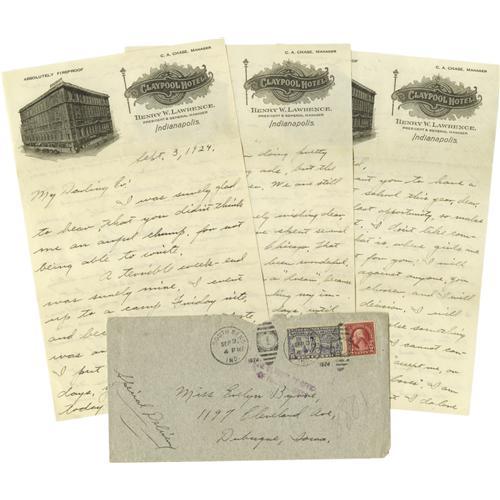 C. A. CHASE, MANAGER
ABSOLUTELY FIREPROOF
CLAYPOOL HOTEL
HENRY W. LAWRENCE,
PRESIDENT & GENERAL MANAGER
Indianapolis.
Sept. 3, 1924.
My Darling Ev:
I was surely glad
to hear that you didn't think
me an awful chump, for not
being able to write.
A terrible week-end
was surely mine, I went
up to a camp Friday nite,
and
was
I but
days,
today
C. A. CHASE, MANAGER
CLAYPOOL HOTEL
HENRY W. LAWRENCE,
PRESIDENT & GENERAL MANAGER
Indianapolis.
doing pretty
but the
We are still
wishing dear,
spent several
Chicago that
been wonderful,
a "dream" because
my in-
days, until
C. A. CHASE, MANAGER
CLAYPOOL HOTEL
HENRY W. LAWRENCE,
PRESIDENT & GENERAL MANAGER
Indianapolis.
you to have a
school this year, dear,
last opportunity, so make
I don't like
what is, when girls are
for you; I will
against anyone, you
choose and I will
decision. I will
else something
I cannot
on
but I do love
SOUTH BEND
SEP 3
4 PM
IND.
1924
1
1924
Special Delivery
Miss Evelyn Byrne,
1197 Cleveland Ave,
Dubuque, Iowa.